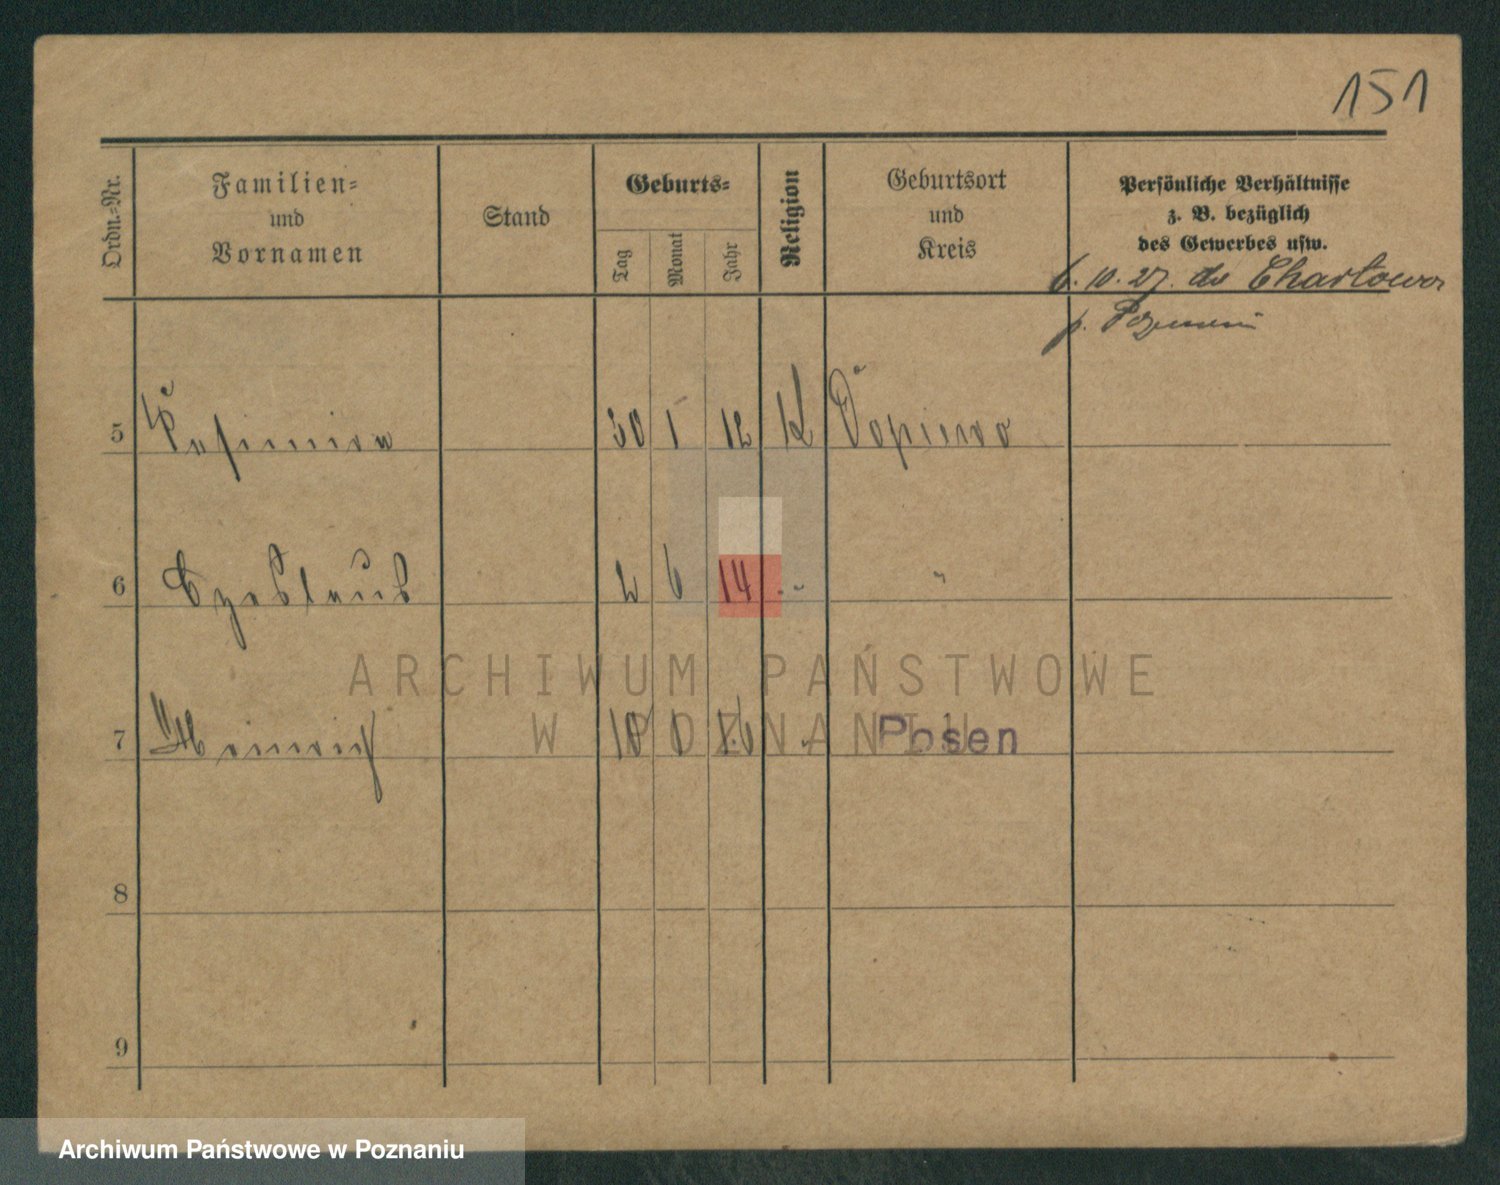 151
Ordn.-Nr.
Familien-
und
Vornamen
Stand
Geburts-
Tag
Monat
Jahr
Religion
Geburtsort
und
Kreis
Persönliche Verhältnisse
z. B. bezüglich
des Gewerbes usw.
6. 10. 27. do Chartowa
p.
5 Kasimira 30 1 12 K Dopiewo
6 Czeslaus 2 6 14 " "
7 Heinrich 18 1 16 Posen
8
9
ARCHIWUM PAŃSTWOWE
W POZNANIU
Archiwum Państwowe w Poznaniu